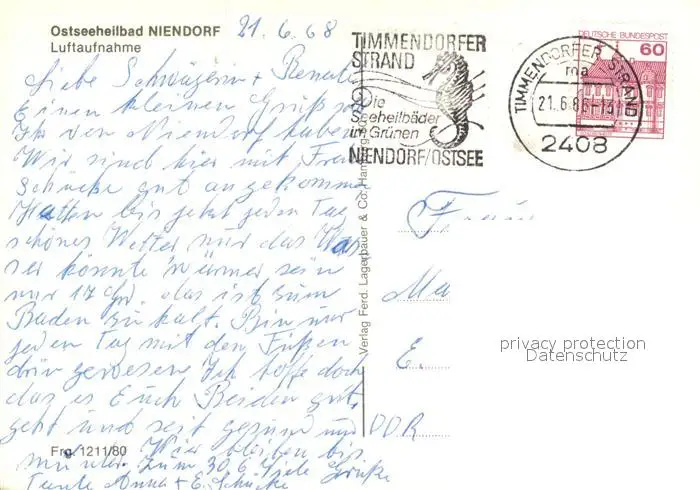 Ostseeheilbad NIENDORF 21.6.68
Luftaufnahme
Liebe Schwägerin + Renate
Einen kleinen Gruß
Ihr von Niendorf haben
Wir sind hier mit Frau
Schücke gut angekommen
Hatten bis jetzt jeden Tag
schönes Wetter nur das Was
ser könnte wärmer sein
nur 17 Gr. das ist zum
Baden zu kalt. Bin nur
jeden Tag mit den Füßen
drin gewesen Ich hoffe doch
das es Euch Beiden gut
geht und seit gesund und
munter. Wir bleiben bis
zum 30.6 Viele Grüße
Tante Anna + E. Schücke
Frg. 1211/80
Verlag Ferd. Lagerbauer & Co. Hamburg
TIMMENDORFER
STRAND
Die
Seeheilbäder
im Grünen
NIENDORF/OSTSEE
TIMMENDORFER STRAND
ma
21.6.86-13
2408
DEUTSCHE BUNDESPOST
60
Frau
Ma
E.
DDR
privacy protection
Datenschutz